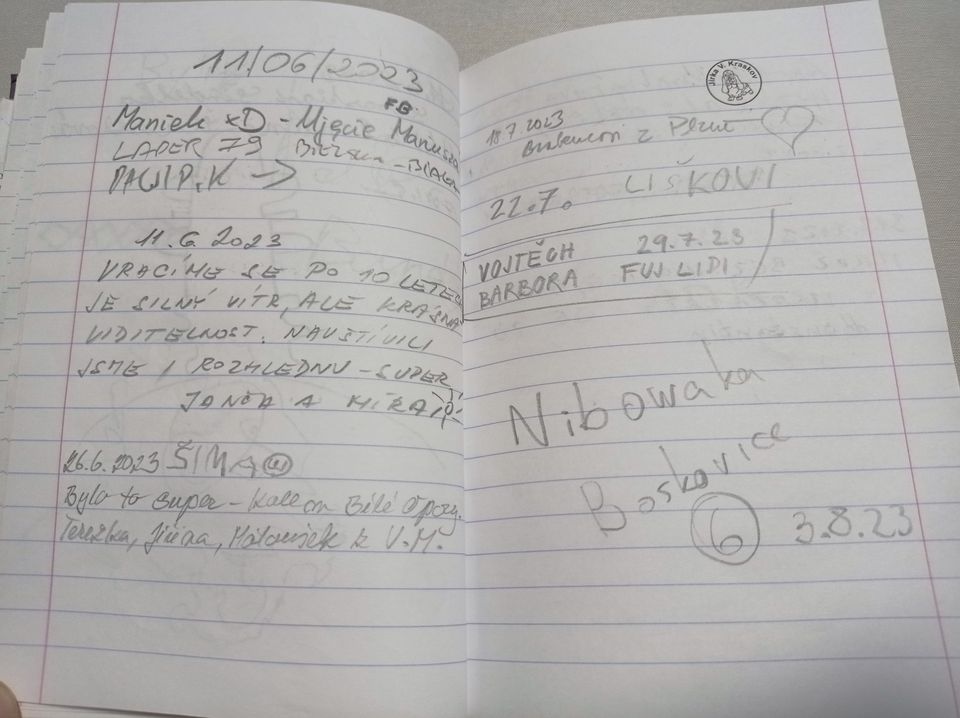 11/06/2023
FB
Maniek xD - Ujęcie Mariusza
LADER 79 BIELSKO-BIAŁA
PAWIP.K →
11.6.2023
VRACÍME SE PO 10 LETECH
JE SILNÝ VÍTR, ALE KRÁSNÁ
VIDITELNOST. NAVŠTÍVILI
JSME I ROZHLEDNU - SUPER
JANČA A MÍRA
26.6.2023 ŠIMA
Bylo to super - kolem Bílé Opavy.
Terezka, Jiřina, Matoušek z V.M.
Jirka V. Kraskov
18.7.2023
z Plzně
22.7. LIŠKOVI
VOJTĚCH 29.7.23
BARBORA FUJ LIDI
Nibowaka
Boskovice
6 3.8.23